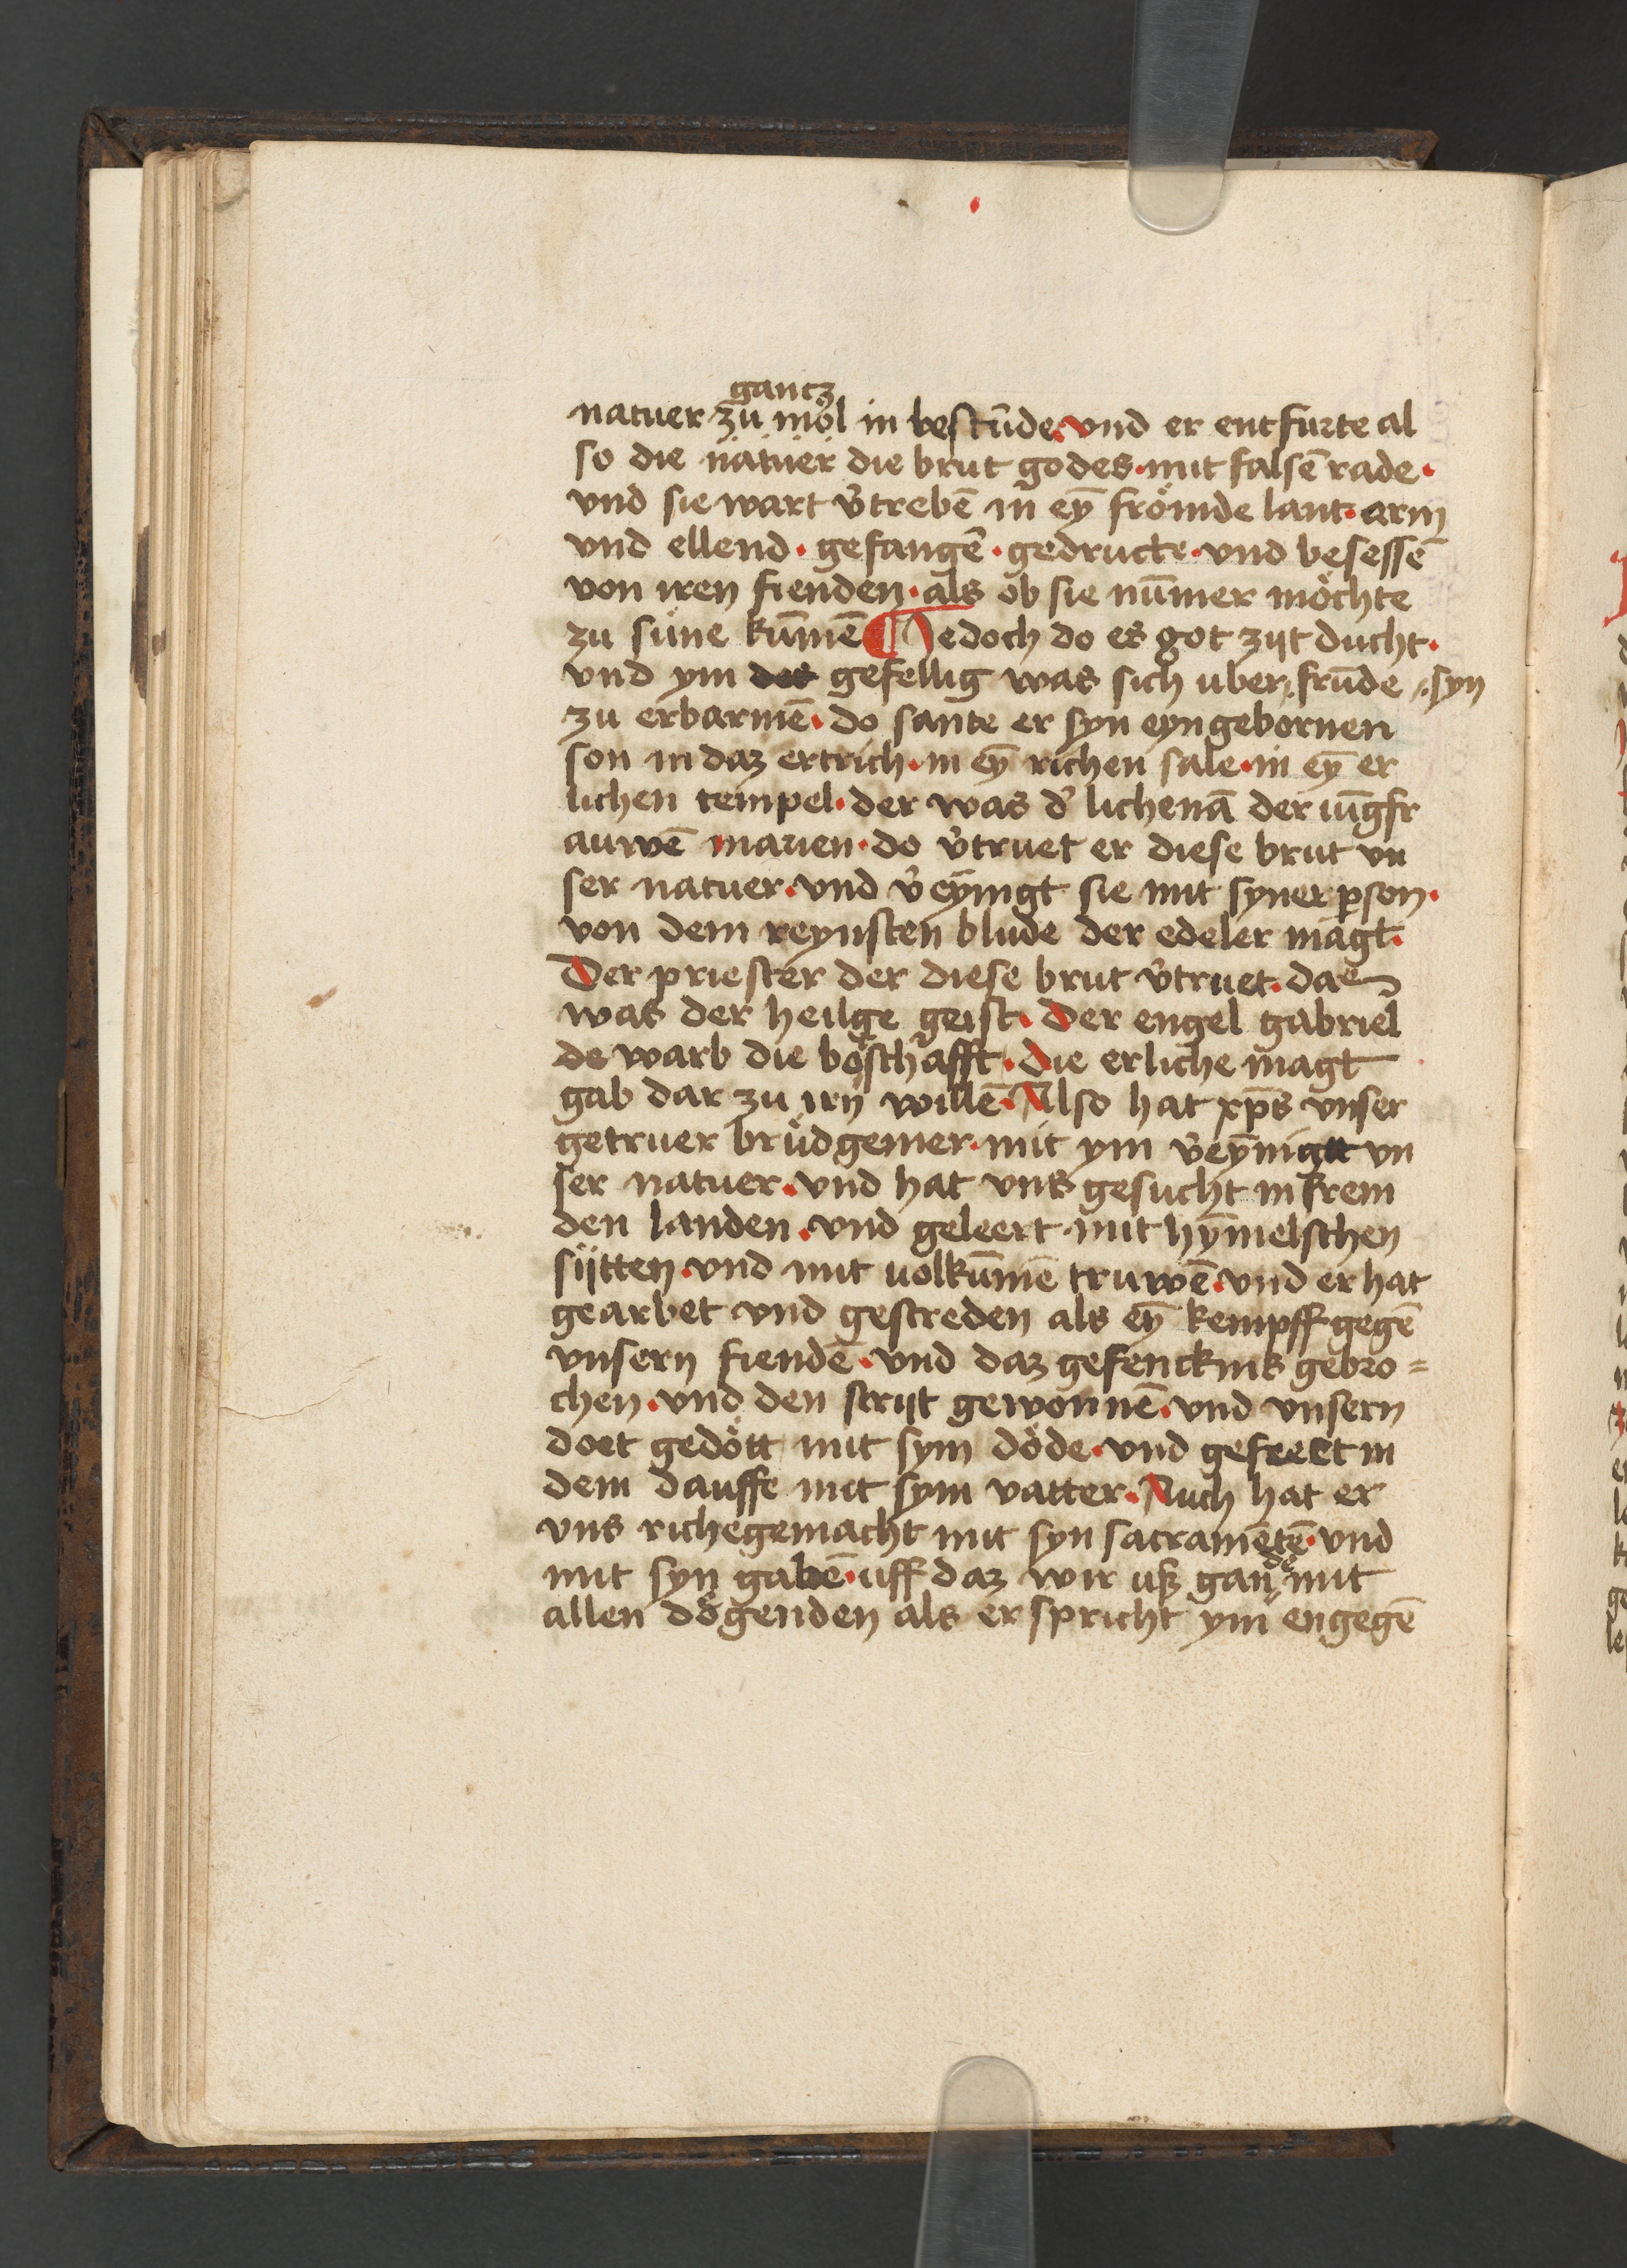 gantz
natuer zu mol in bestūde· vnd er entfurte al
so die natuer die brut godes· mit falsē rade·
vnd sie wart v̄trebē in eȳ frömde lant· arm
vnd ellend· gefangē· gedruckt· vnd besessē
von iren fienden· als ob sie nūmer möchte
zu süne kūmē ¶ Jedoch do es got zijt ducht·
vnd ym des gefellig was sich uber frūde syn
zu erbarmē· do sante er syn eyngebornen
son in daz ertrich· in eȳ richen sale· in eȳ er
lichen tempel· der was d' lichenā der iūgfr
auwē marien· do v̄truet er diese brut vn
ser natuer· vnd v̄eynigt sie mit syner ꝑson·
von dem reynsten blude der edeler magt·
Der priester der diese brut v̄truet· dae
was der heilge geist· Der engel gabriel
de warb die boschafft· die erliche magt
gab dar zu irn willē· Also hat xp̄s vnser
getruer brüdgemer· mit ym v̄eȳnigtt vn
ser natuer· vnd hat vns gesucht in frem
den landen· vnd geleert mit hȳmelschen
sijtten· vnd mit uolkūmē truwē· vnd er hat
gearbet vnd gestreden als eȳ kempff gegē
vnsern fiendē· vnd daz gefencknis gebro=
chen· vnd den strijt gewonnē· vnd vnsern
doet gedött mit sym döde· vnd gefreet in
dem dauffe mit sym vatter· Auch hat er
vns riche gemacht mit syn sacramētē· vnd
mit syn gabē· uff daz wir uß gan dē mit
allen dögenden als er spricht ym engegē